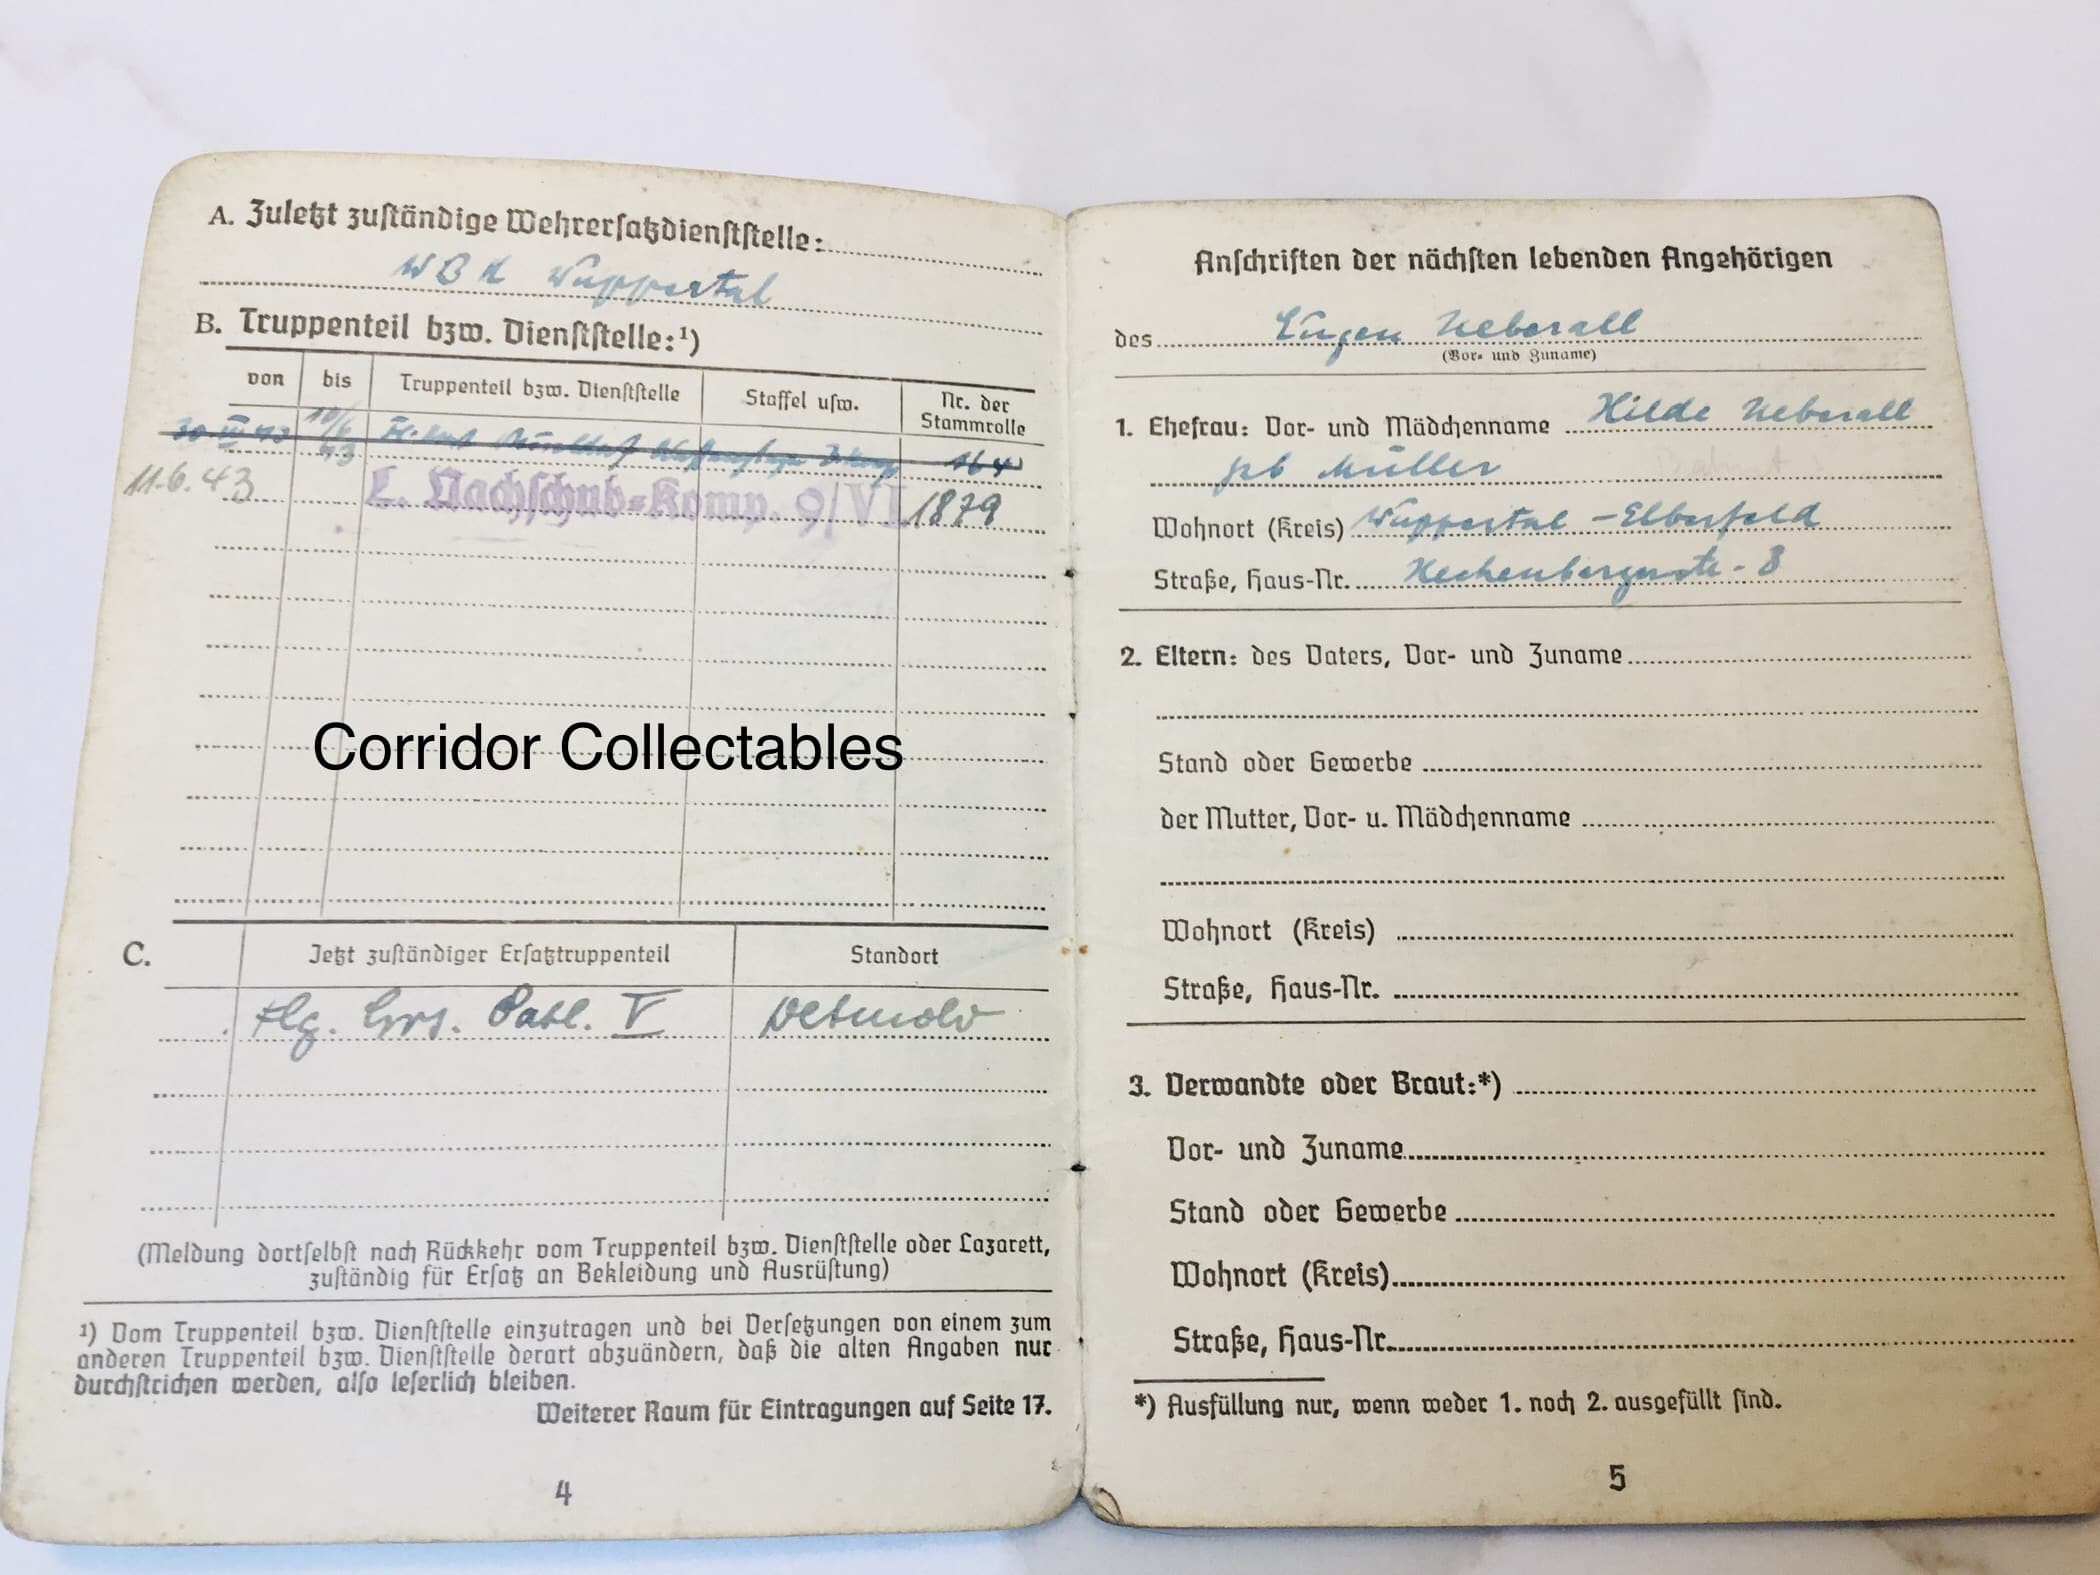 A. Zuletzt zuständige Wehrersatzdienststelle:
WBK Wuppertal
B. Truppenteil bzw. Dienststelle:¹)
von bis Truppenteil bzw. Dienststelle Staffel usw. Nr. der Stammrolle
30 III 43 10/6 43 164
11.6.43 L. Nachschub-Komp. 9/VI 1879
Corridor Collectables
C. Jetzt zuständiger Ersatztruppenteil Standort
Flg. Ers. Batl. V Detmold
(Meldung dortselbst nach Rückkehr vom Truppenteil bzw. Dienststelle oder Lazarett,
zuständig für Ersatz an Bekleidung und Ausrüstung)
¹) Vom Truppenteil bzw. Dienststelle einzutragen und bei Versetzungen von einem zum
anderen Truppenteil bzw. Dienststelle derart abzuändern, daß die alten Angaben nur
durchstrichen werden, also leserlich bleiben.
Weiterer Raum für Eintragungen auf Seite 17.
4
Anschriften der nächsten lebenden Angehörigen
des Eugen Ueberall
(Vor- und Zuname)
1. Ehefrau: Vor- und Mädchenname Hilde Ueberall
geb Müller
Wohnort (Kreis) Wuppertal-Elberfeld
Straße, Haus-Nr. 8
2. Eltern: des Vaters, Vor- und Zuname
Stand oder Gewerbe
der Mutter, Vor- u. Mädchenname
Wohnort (Kreis)
Straße, Haus-Nr.
3. Verwandte oder Braut:*)
Vor- und Zuname
Stand oder Gewerbe
Wohnort (Kreis)
Straße, Haus-Nr.
*) Ausfüllung nur, wenn weder 1. noch 2. ausgefüllt sind.
5